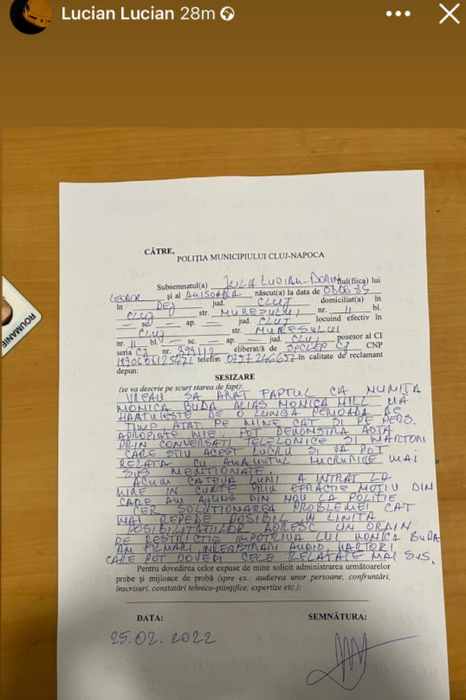 Lucian Lucian 28m
ROUMANIE
CĂTRE,
POLIȚIA MUNICIPIULUI CLUJ-NAPOCA
Subsemnatul(a) LUCIAN-DORIN fiul(fiica) lui
și al ANISOARA născut(a) la data de
în DEJ jud. CLUJ domiciliat(a) în
CLUJ str. MUREZULUI nr. 11 bl.
— sc. — ap. — jud. CLUJ locuind efectiv în
CLUJ str. MUREȘULUI
nr. 11 bl. — sc. — ap. — jud. CLUJ posesor al CI
seria CJ nr. eliberat/ă de SPCLEP CJ CNP
telefon în calitate de reclamant
depun:
SESIZARE
(se va descrie pe scurt starea de fapt):
VREAU SA ARAT FAPTUL CA NUMITA
MONICA BUDA ALIAS MONICA HILL MA
HARTUIESTE DE O LUNGA PERIOADA DE
TIMP ATAT PE MINE CAT SI PE PERS.
APROPIATE MIE POT DEMONSTRA ASTA
PRIN CONVERSATI TELEFONICE SI MARTORI
CARE STIU ACEST LUCRU SI VA POT
RELATA CU AMANUTUL LUCRURILE MAI
SUS MENTIONATE.
ACUM CATEVA LUNI A INTRAT LA
MINE IN CURTE PRIN EFRACTIE MOTIV DIN
CARE AM AJUNS DIN NOU LA POLITIE
CER SOLUTIONAREA PROBLEMEI CAT
MAI REPEDE POSIBIL IN LIMITA
POSIBILITATILOR ADRESC UN ORDIN
DE RESTRICTIE IMPOTRIVA LUI MONICA BUDA
AM FILMARI INREGISTRARI AUDIO MARTORI
CARE POT DOVEDI CELE RELATATE MAI SUS.
Pentru dovedirea celor expuse de mine solicit administrarea următoarelor
probe și mijloace de probă (spre ex.: audierea unor persoane, confruntări,
înscrisuri, constatări tehnico-științifice, expertize etc.):
DATA:
SEMNĂTURA:
25.02.2022